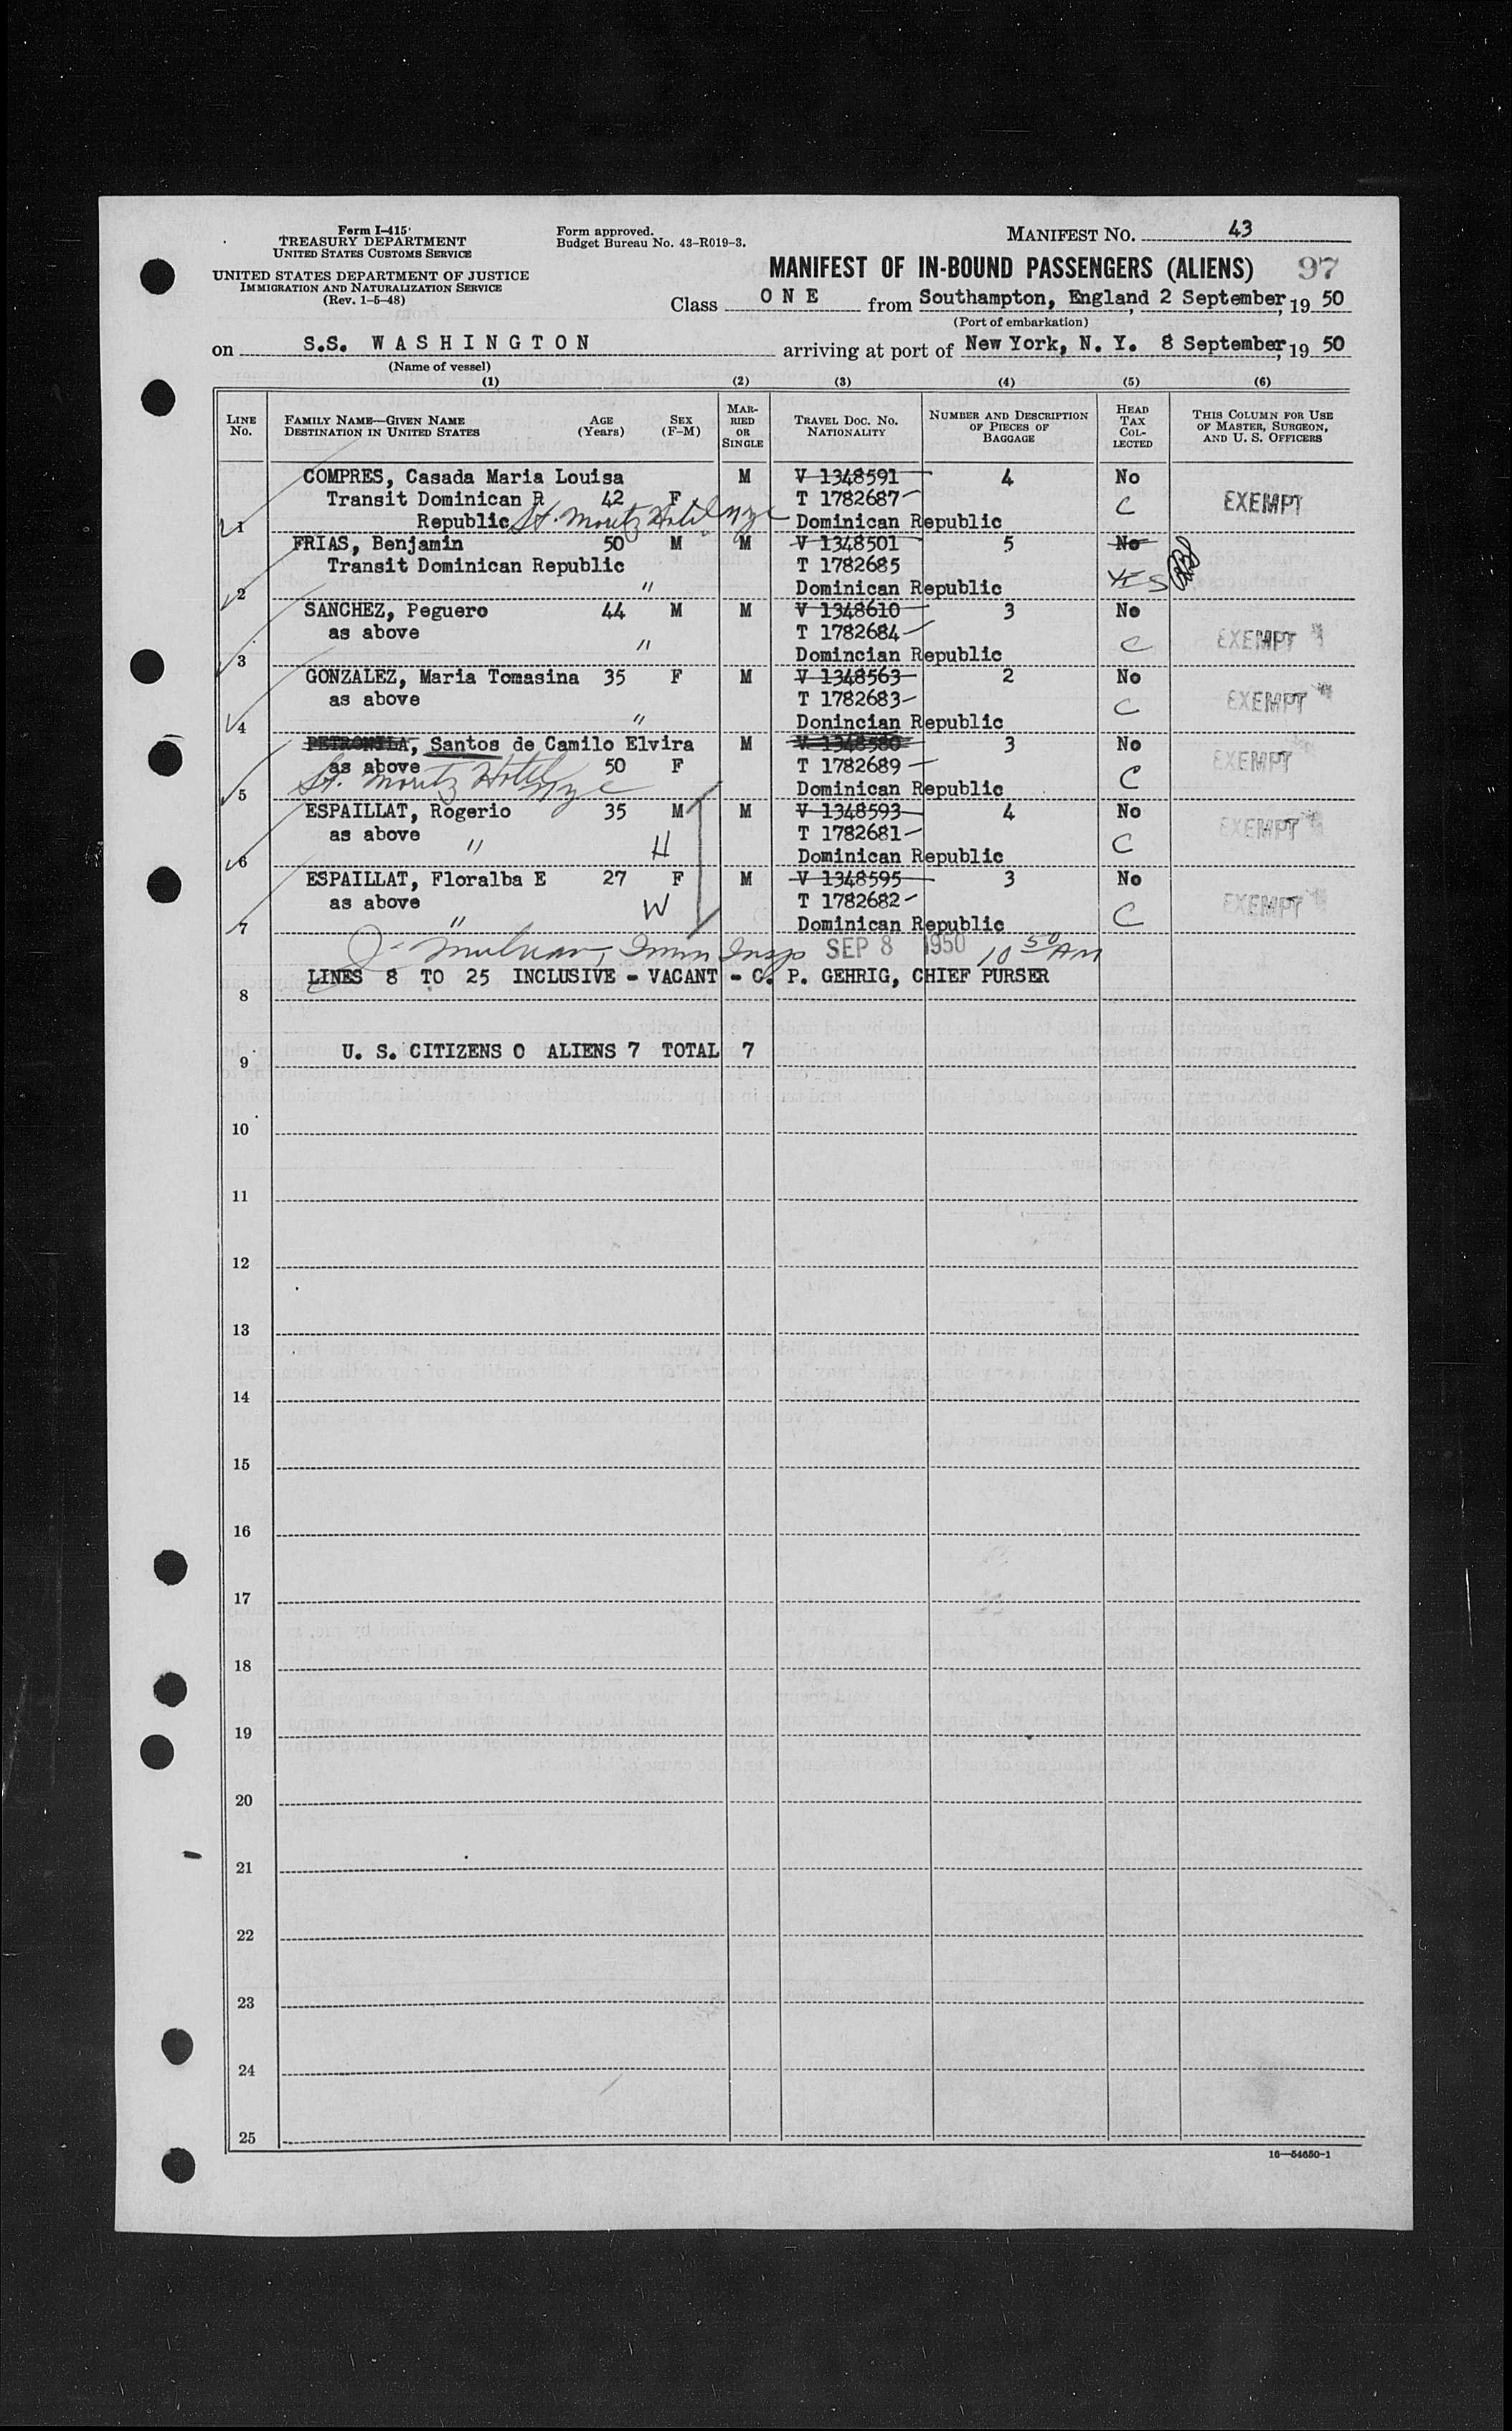 Form I-415
TREASURY DEPARTMENT
UNITED STATES CUSTOMS SERVICE
UNITED STATES DEPARTMENT OF JUSTICE
IMMIGRATION AND NATURALIZATION SERVICE
(Rev. 1-5-48)
Form approved.
Budget Bureau No. 43-R019-3.
MANIFEST NO. 43
MANIFEST OF IN-BOUND PASSENGERS (ALIENS) 97
Class O N E from Southampton, England, 2 September, 19 50
(Port of embarkation)
on S.S. W A S H I N G T O N arriving at port of New York, N. Y. 8 September, 19 50
(Name of vessel)
(1) (2) (3) (4) (5) (6)
LINE No. FAMILY NAME—GIVEN NAME DESTINATION IN UNITED STATES AGE (Years) SEX (F-M) MARRIED OR SINGLE TRAVEL DOC. NO. NATIONALITY NUMBER AND DESCRIPTION OF PIECES OF BAGGAGE HEAD TAX COLLECTED THIS COLUMN FOR USE OF MASTER, SURGEON, AND U. S. OFFICERS
COMPRES, Casada Maria Louisa M V 1348591 4 No
Transit Dominican R 42 F T 1782687 C EXEMPT
1 Republic St. Moritz Hotel NYC Dominican Republic
FRIAS, Benjamin 50 M M V 1348501 5 No
Transit Dominican Republic T 1782685 YES
2 " Dominican Republic
SANCHEZ, Peguero 44 M M V 1348610 3 No
as above T 1782684 C EXEMPT
3 " Domincian Republic
GONZALEZ, Maria Tomasina 35 F M V 1348563 2 No
as above T 1782683 C EXEMPT
4 " Donincian Republic
PETRONILA, Santos de Camilo Elvira M V 1348580 3 No
as above 50 F T 1782689 C EXEMPT
5 St. Moritz Hotel NYC Dominican Republic
ESPAILLAT, Rogerio 35 M M V 1348593 4 No
as above T 1782681 C EXEMPT
6 " H Dominican Republic
ESPAILLAT, Floralba E 27 F M V 1348595 3 No
as above W T 1782682 C EXEMPT
7 " Dominican Republic
Imm Insp SEP 8 1950 10 50 AM
LINES 8 TO 25 INCLUSIVE - VACANT - C. P. GEHRIG, CHIEF PURSER
8
U. S. CITIZENS 0 ALIENS 7 TOTAL 7
9
10
11
12
13
14
15
16
17
18
19
20
21
22
23
24
25
16—54650-1